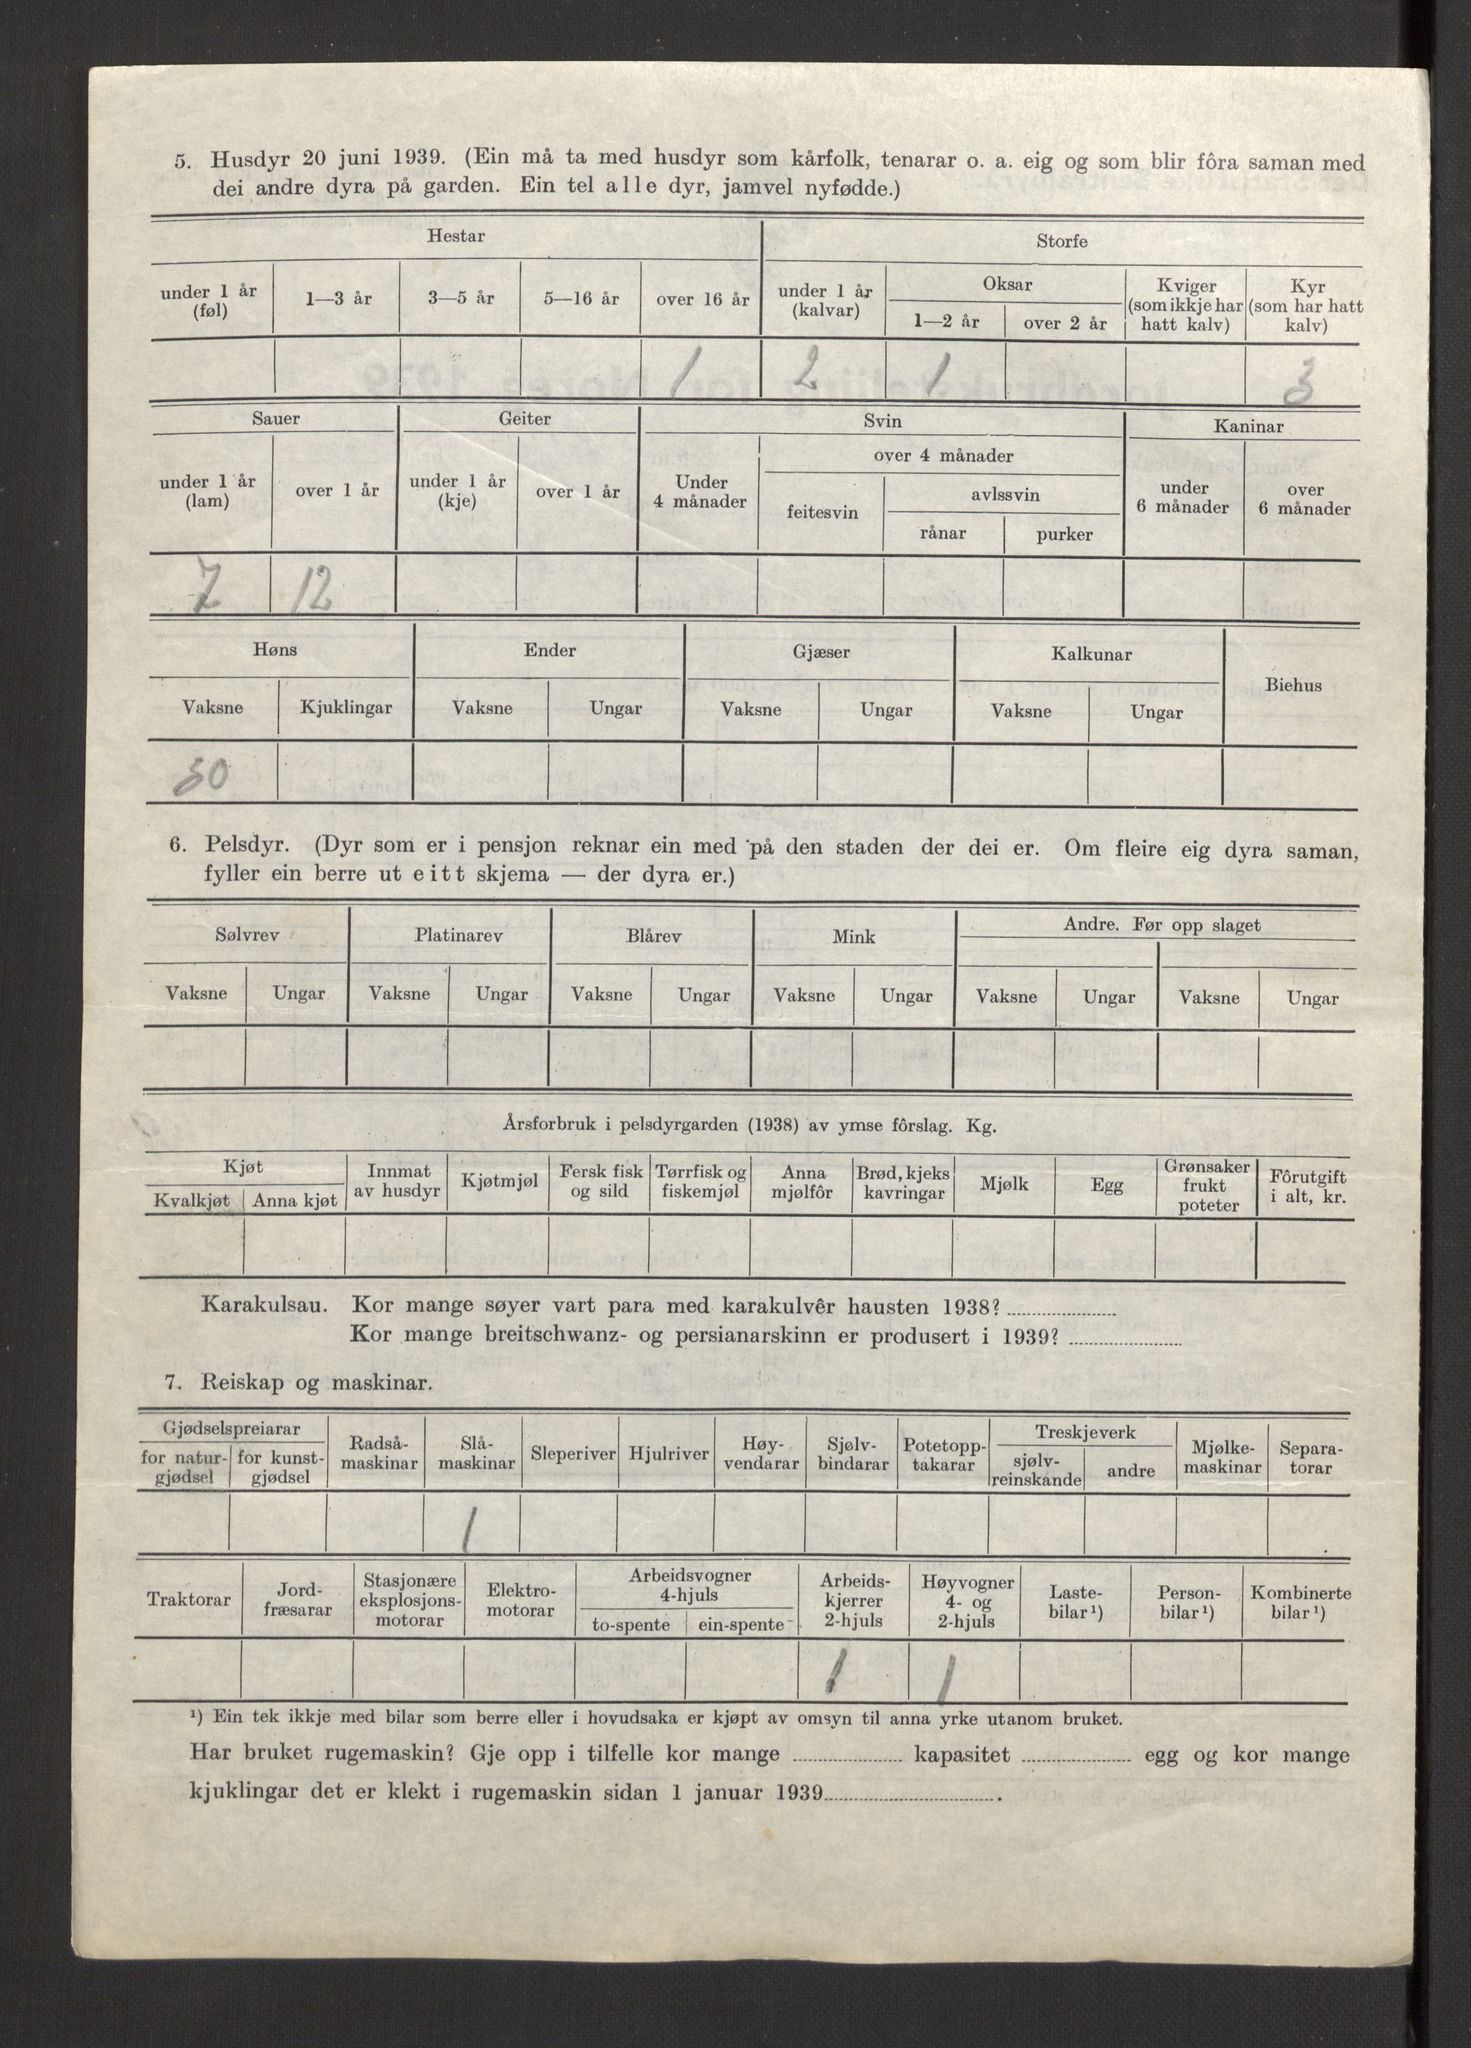 5. Husdyr 20 juni 1939. (Ein må ta med husdyr som kårfolk, tenarar o. a. eig og som blir fôra saman med
dei andre dyra på garden. Ein tel alle dyr, jamvel nyfødde.)
Hestar Storfe
under 1 år (føl) 1—3 år 3—5 år 5—16 år over 16 år under 1 år (kalvar) Oksar 1—2 år over 2 år Kviger (som ikkje har hatt kalv) Kyr (som har hatt kalv)
1 2 1 3
Sauer Geiter Svin Kaninar
under 1 år (lam) over 1 år under 1 år (kje) over 1 år Under 4 månader over 4 månader feitesvin avlssvin rånar purker under 6 månader over 6 månader
7 12
Høns Ender Gjæser Kalkunar Biehus
Vaksne Kjuklingar Vaksne Ungar Vaksne Ungar Vaksne Ungar
30
6. Pelsdyr. (Dyr som er i pensjon reknar ein med på den staden der dei er. Om fleire eig dyra saman,
fyller ein berre ut eitt skjema — der dyra er.)
Sølvrev Platinarev Blårev Mink Andre. Før opp slaget
Vaksne Ungar Vaksne Ungar Vaksne Ungar Vaksne Ungar Vaksne Ungar Vaksne Ungar
Årsforbruk i pelsdyrgarden (1938) av ymse fôrslag. Kg.
Kjøt Kvalkjøt Anna kjøt Innmat av husdyr Kjøtmjøl Fersk fisk og sild Tørrfisk og fiskemjøl Anna mjølfôr Brød, kjeks kavringar Mjølk Egg Grønsaker frukt poteter Fôrutgift i alt, kr.
Karakulsau. Kor mange søyer vart para med karakulvêr hausten 1938?
Kor mange breitschwanz- og persianarskinn er produsert i 1939?
7. Reiskap og maskinar.
Gjødselspreiarar for natur-gjødsel for kunst-gjødsel Radså-maskinar Slå-maskinar Sleperiver Hjulriver Høy-vendarar Sjølv-bindarar Potetopp-takarar Treskjeverk sjølv-reinskande andre Mjølke-maskinar Separa-torar
1
Traktorar Jord-fræsarar Stasjonære eksplosjons-motorar Elektro-motorar Arbeidsvogner 4-hjuls to-spente ein-spente Arbeids-kjerrer 2-hjuls Høyvogner 4- og 2-hjuls Laste-bilar¹) Person-bilar¹) Kombinerte bilar¹)
1 1
¹) Ein tek ikkje med bilar som berre eller i hovudsaka er kjøpt av omsyn til anna yrke utanom bruket.
Har bruket rugemaskin? Gje opp i tilfelle kor mange kapasitet egg og kor mange
kjuklingar det er klekt i rugemaskin sidan 1 januar 1939 .